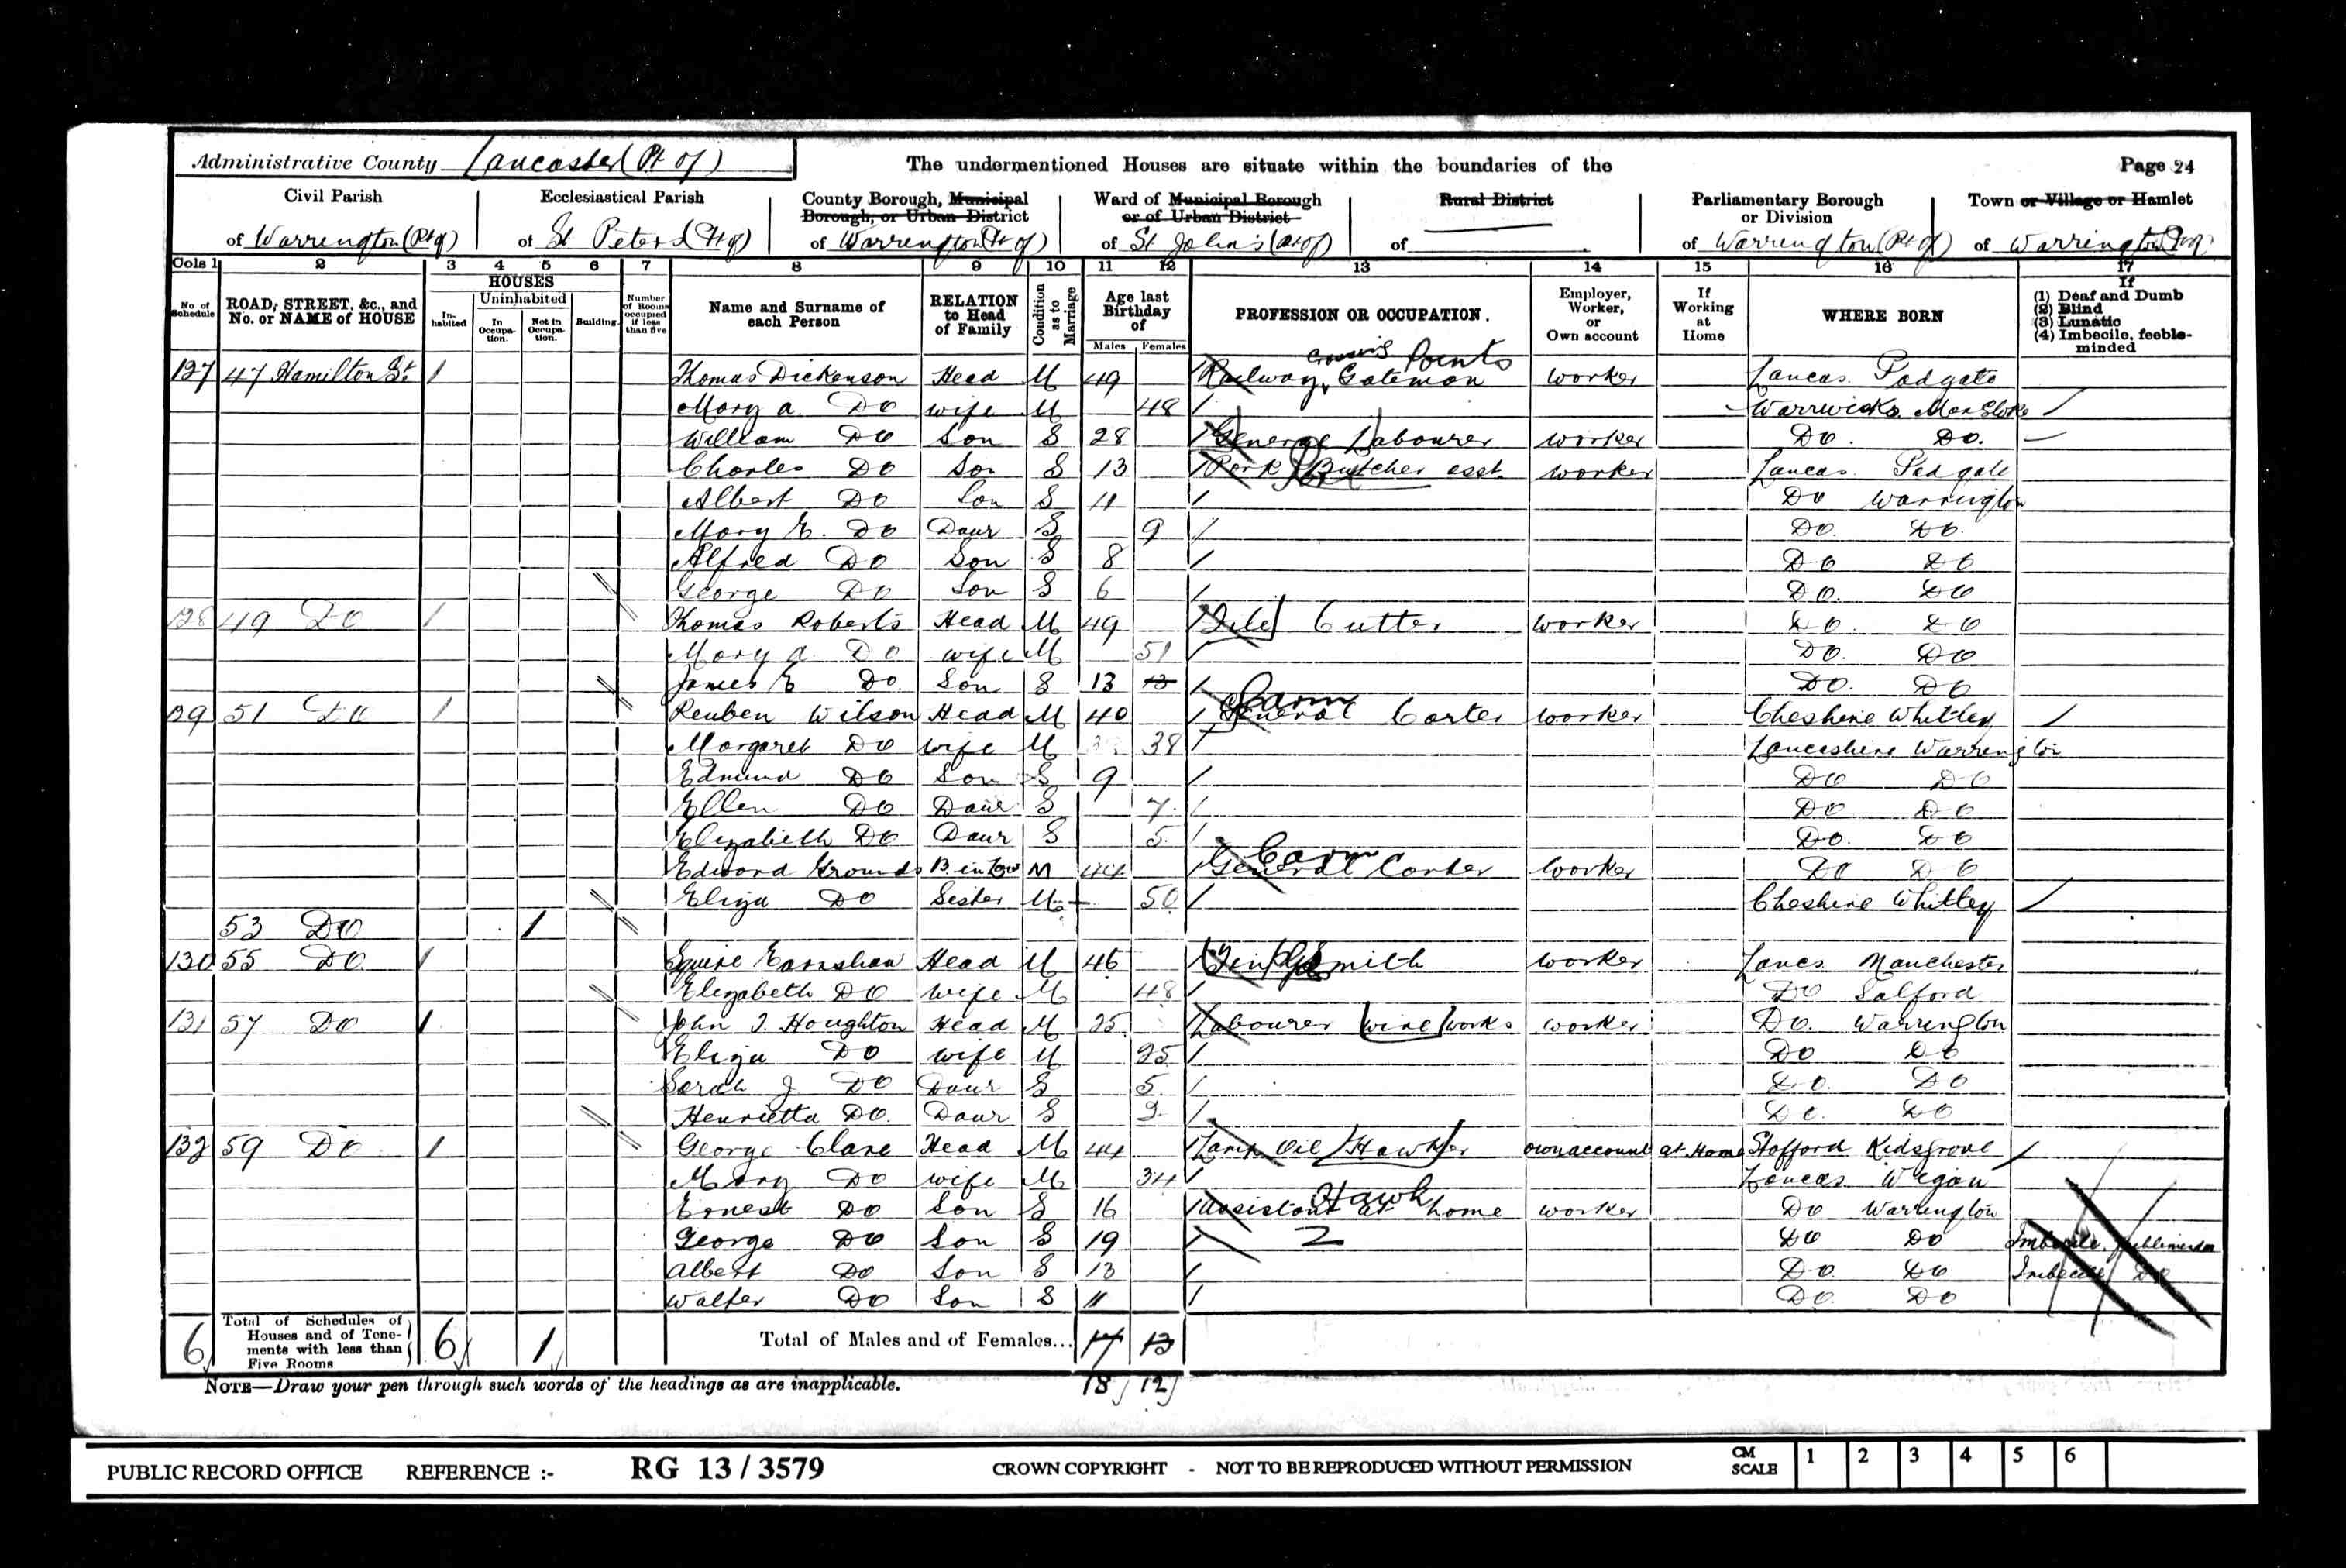 Administrative County Lancaster (Pt of) The undermentioned Houses are situate within the boundaries of the Page 24
Civil Parish Ecclesiastical Parish County Borough, Municipal Borough, or Urban District Ward of Municipal Borough or of Urban District Rural District Parliamentary Borough or Division Town or Village or Hamlet
of Warrington (Pt of) of St Peters (Pt of) of Warrington (Pt of) of St John's (Pt of) of of Warrington (Pt of) of Warrington (Pt of)
Cols 1 2 3 4 5 6 7 8 9 10 11 12 13 14 15 16 17
No. of Schedule ROAD, STREET, &c., and No. or NAME of HOUSE HOUSES In-habited Uninhabited In Occupa-tion. Not in Occupa-tion. Building. Number of Rooms occupied if less than five Name and Surname of each Person RELATION to Head of Family Condition as to Marriage Age last Birthday of Males Females PROFESSION OR OCCUPATION. Employer, Worker, or Own account If Working at Home WHERE BORN If (1) Deaf and Dumb (2) Blind (3) Lunatic (4) Imbecile, feeble-minded
crossing Points
127 47 Hamilton St. 1 Thomas Dickenson Head M 49 Railway Gateman worker Lancas. Padgate
Mary A. Do wife M 48 Warwicks
William Do Son S 28 General Labourer worker Do. Do.
Charles Do Son S 13 Pork Butcher asst. worker Lancas. Padgate
Albert Do Son S 11 Do Warrington
Mary E. Do Daur S 9 Do. Do.
Alfred Do Son S 8 Do Do
George Do Son S 6 Do. Do
128 49 Do 1 Thomas Roberts Head M 49 File Cutter worker Do. Do
Mary A. Do wife M 51 Do. Do
James E Do. Son S 13 13 Do. Do
Carm
129 51 Do 1 Reuben Wilson Head M 40 General Carter worker Cheshire Whitley
Margaret Do wife M 38 Lancashire Warrington
Edmund Do Son S 9 Do Do
Ellen Do Daur S 7. Do Do
Elizabeth Do Daur S 5. Do. Do
Carm
Edward Grounds B. in Law M 44 General Carter worker Do Do
Eliza Do Sister M 50 Cheshire Whitley
53 Do 1
130 55 Do. 1 Squire Earnshaw Head M 46 Tin Smith worker Lancs. Manchester
Elizabeth Do wife M 48 Do Salford
131 57 Do 1 John T. Houghton Head M 25 Labourer wire works worker Do. Warrington
Eliza Do wife M 25 Do Do
Sarah J Do Daur S 5 Do. Do
Henrietta Do. Daur S Do. Do
132 59 Do 1 George Clare Head M 44 Lamp Oil Hawker own account at Home Stafford Kidsgrove
Mary Do wife M 34 Lancas Wigan
Hawk
Ernest Do Son S 16 Assistant at home worker Do Warrington
George Do Son S 19 2 Do Do Imbecile, feebleminded
Albert Do Son S 13 Do. Do Imbecile Do
Walter Do Son S 11 Do. Do
6 Total of Schedules of Houses and of Tene-ments with less than Five Rooms 6 1 Total of Males and of Females... 17 13
NOTE—Draw your pen through such words of the headings as are inapplicable. 18 12
PUBLIC RECORD OFFICE REFERENCE :- RG 13 / 3579 CROWN COPYRIGHT - NOT TO BE REPRODUCED WITHOUT PERMISSION CM SCALE 1 2 3 4 5 6